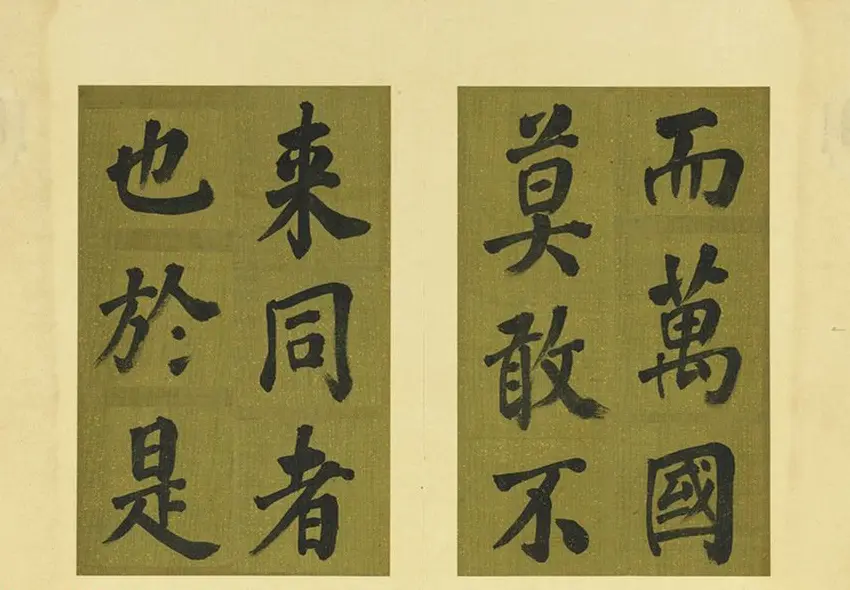 而萬國
莫敢不
来同者
也於是